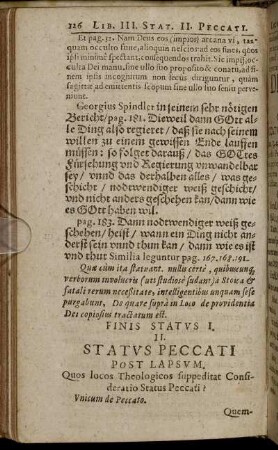 126 LIB. III. STAT. II. PECCATI.
Et pag. 32. Nam Deus eos (impios) arcana vi, tan-
quam occulto fune, alioquin nescios ad eos fines, quos
ipsi minimè spectant, consequendos trahit. Sic impij, oc-
culta Dei manu, sine ullo suo proposito & conatu, ad fi-
nem ipsis incognitum non secùs diriguntur, quàm
sagittæ ad emittentis scopum sine ullo suo sensu perve-
niunt.
Georgius Spindler in seinem sehr nötigen
Bericht/ pag. 181. Dieweil dann GOtt al-
le Ding also regieret/ daß sie nach seinem
willen zu einem gewissen Ende lauffen
müssen: so folget darauß/ das GOttes
Fürsehung vnd Regierung vnwandelbar
sey/ vnnd das derhalben alles/ was ge-
schicht/ nodtwendiger weiß geschicht/
vnd nicht anders geschehen kan/ dann wie
es GOtt haben wil.
pag. 183. Dann nodtwendiger weiß ge-
schehen/ heist/ wann ein Ding nicht an-
derß sein vnnd thun kan/ dann wie es ist
vnd thut Similia leguntur pag. 167. 168. 191.
Quæ cùm ita statuant, nullo certè, quibuscunq;
verborum involucris suti studiosè sudant, à Stoica &
fatali rerum necessitate, intelligentibus unquam sese
purgabunt. De quare suprà in Loco de providentia
Dei copiosius tractatum est.
FINIS STATVS I.
II.
STATVS PECCATI
POST LAPSVM.
Quos locos Theologicos suppeditat Consi-
deratio Status Peccati?
Vnicum de Peccato.
Quem-